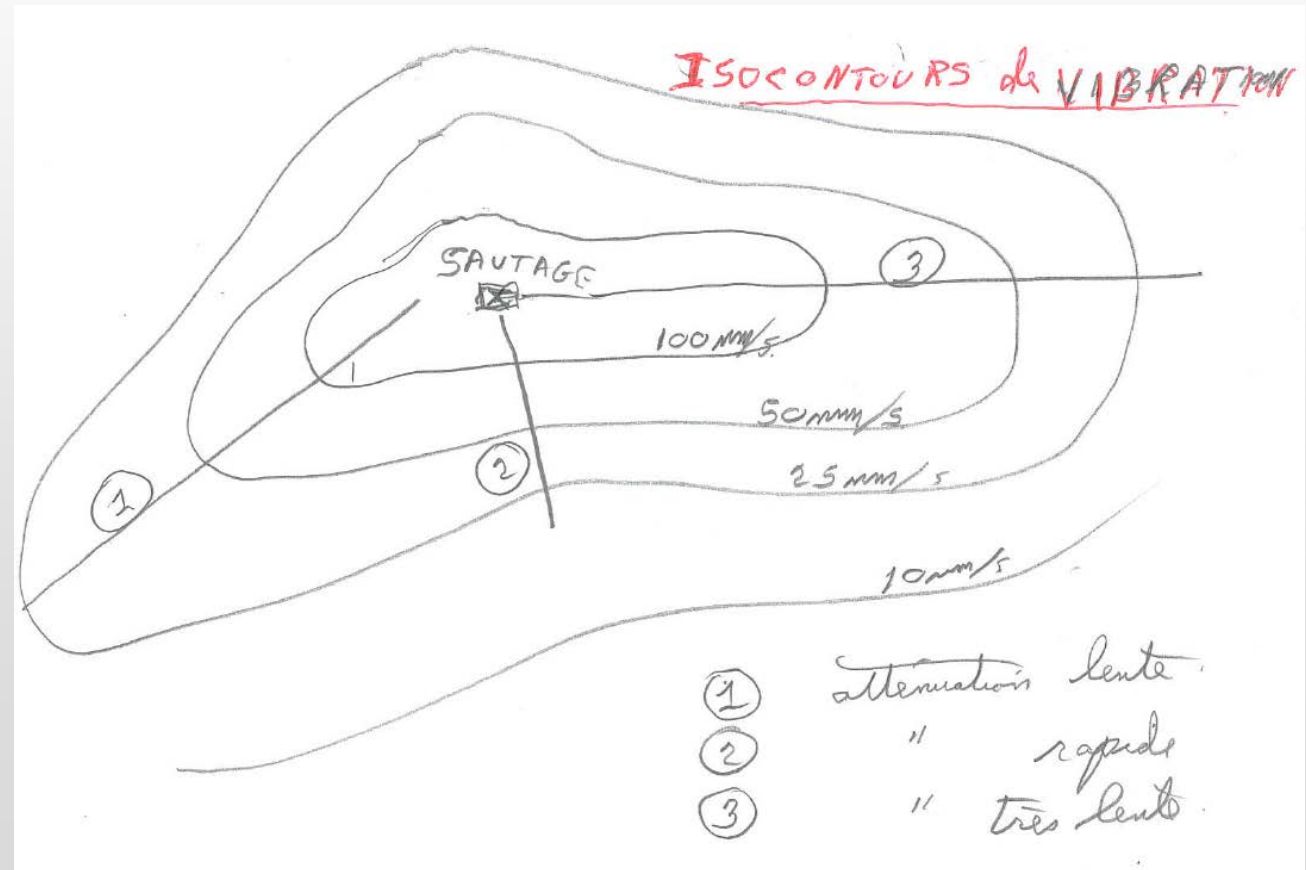 ISOCONTOURS de VIBRATION
SAUTAGE
3
100 mm/s
50 mm/s
2
25 mm/s
1
10 mm/s
1 attenuation lente.
2 " rapide
3 " très lente.